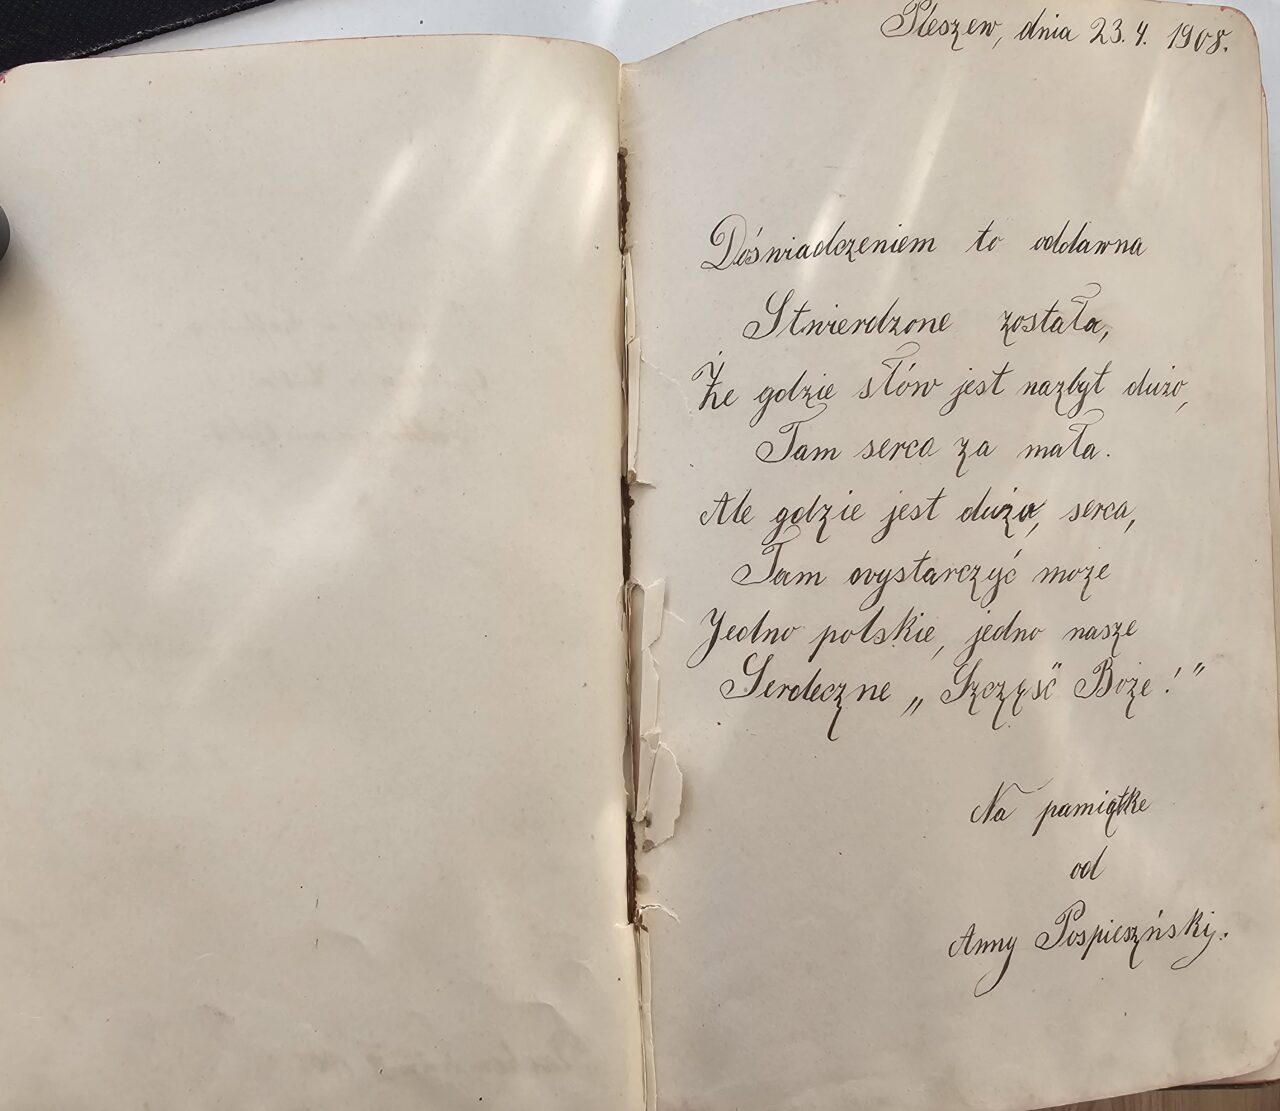 Pleszew, dnia 23. 4. 1908.
Doświadczeniem to oddawna
Stwierdzone została,
Że gdzie słów jest nazbyt dużo,
Tam serca za mała.
Ale gdzie jest dużo, serca,
Tam wystarczyć może
Jedno polskie, jedno nasze
Serdeczne „Szczęść Boże!"
Na pamiątke
od
Anny Pospieszńskij.